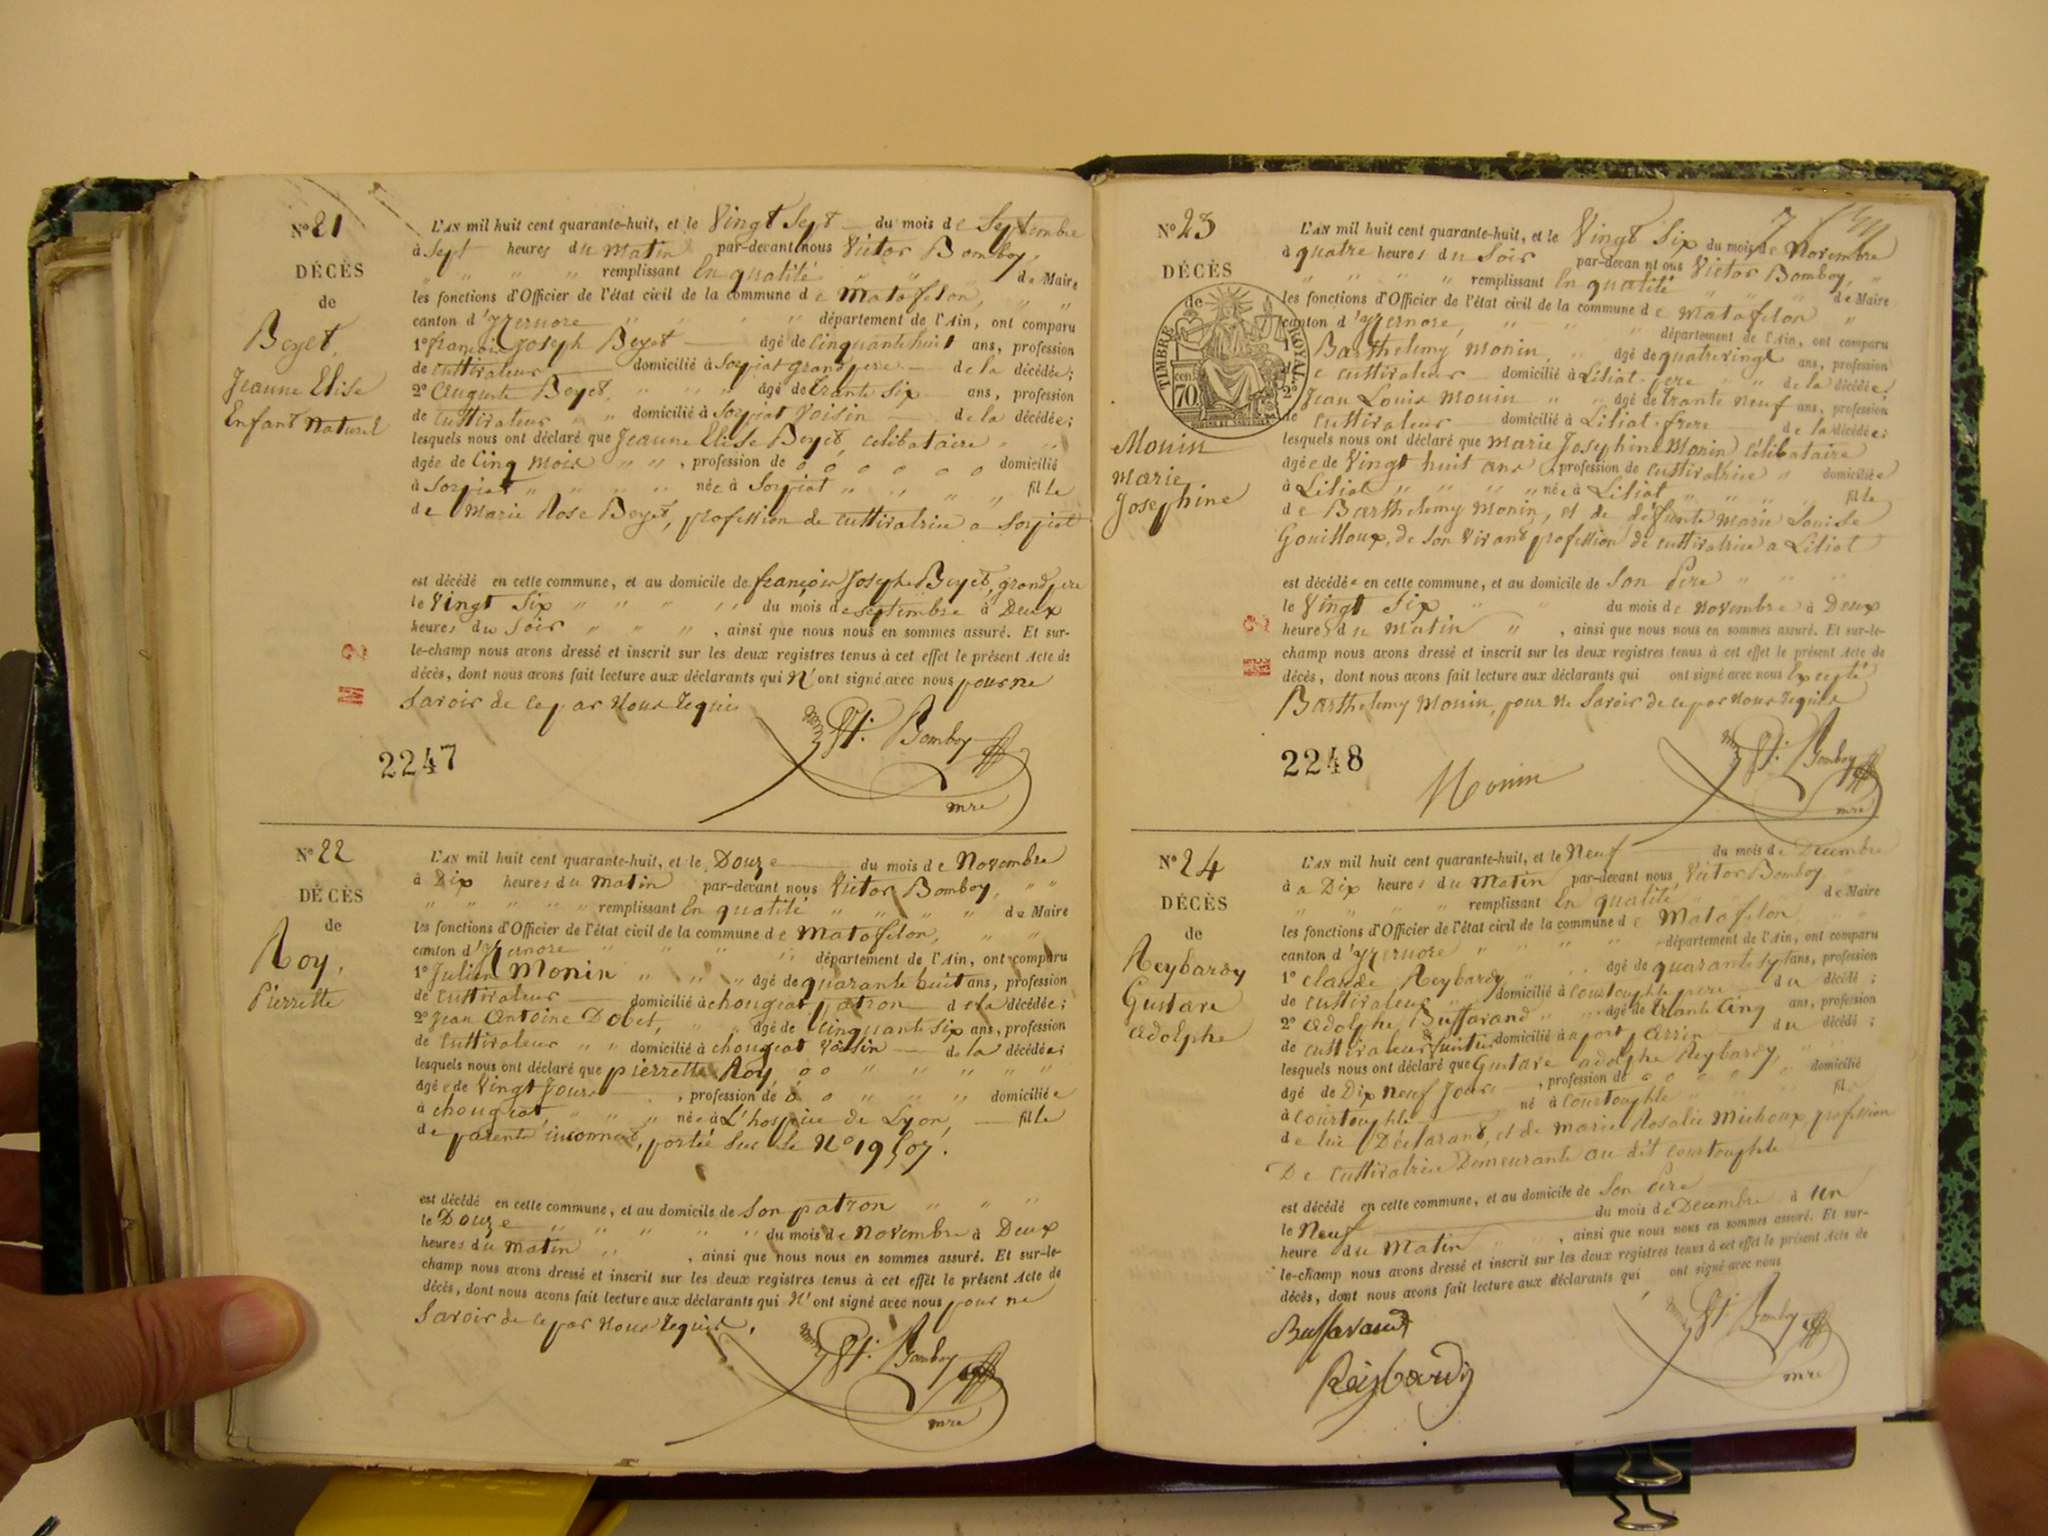 N° 21
DÉCÈS
de
Beyet,
Jeanne Elise
Enfant Naturel
L'AN mil huit cent quarante-huit, et le Vingt Sept du mois de Septembre
à Sept heures du matin par-devant nous Victor Bomboy,
" " " " remplissant En qualité " " de Maire
les fonctions d'Officier de l'état civil de la commune de Matafelon, "
canton d'Yzernore " " " " département de l'Ain, ont comparu
1° françois Joseph Beyet agé de Cinquante huit ans, profession
de cultivateur domicilié à Sorpiat grand pere de la décédée;
2° Auguste Beyet, " " " agé de trante Six ans, profession
de Cultivateur " " domicilié à Sorpiat Voisin de la décédée;
lesquels nous ont déclaré que Jeanne Elise Beyet, celibataire " "
agée de Cinq mois " " , profession de o o o o o o domicilié
à Sorpiat " " " " née à Sorpiat " " " " fille
de Marie Rose Beyet, profession de cultivatrice a Sorpiat
est décédé en cette commune, et au domicile de françois Joseph Beyet, grand pere
le Vingt Six " " " " du mois de septembre à Deux
heures du Soir " " " , ainsi que nous nous en sommes assuré. Et sur-
le-champ nous avons dressé et inscrit sur les deux registres tenus à cet effet le présent Acte de
décès, dont nous avons fait lecture aux déclarants qui N'ont signé avec nous pour ne
Savoir de ce par Nous Requis
Bomboy
mre
2247
N° 22
DÉCÈS
de
Roy,
Pierrette
L'AN mil huit cent quarante-huit, et le Douze du mois de Novembre
à Dix heures du matin par-devant nous Victor Bomboy, " "
" " " " " remplissant En qualité " " " " de Maire
les fonctions d'Officier de l'état civil de la commune de Matafelon, " "
canton d'Yzernore " " " " département de l'Ain, ont comparu
1° Julien Monin " " " agé de quarante huit ans, profession
de Cultivateur domicilié à chougeat patron de la décédée;
2° Jean Antoine Dobet, " " agé de Cinquante Six ans, profession
de Cultivateur " " domicilié à chougeat Voisin de la décédée;
lesquels nous ont déclaré que pierrette Roy, o o " " " " "
agée de Vingt Jours , profession de o o " " " domiciliée
à chougeat, " " " " née à L'hospice de Lyon, fille
de parents inconnus, portée Sur Le N°
est décédé en cette commune, et au domicile de Son patron " " "
le Douze " " " " " du mois de Novembre à Deux
heures du matin " " , ainsi que nous nous en sommes assuré. Et sur-le-
champ nous avons dressé et inscrit sur les deux registres tenus à cet effet le présent Acte de
décès, dont nous avons fait lecture aux déclarants qui N'ont signé avec nous pour ne
Savoir de ce par Nous Requis,
Bomboy
mre
N° 23
DÉCÈS
de
TIMBRE ROYAL
70 cen
Monin
Marie
Josephine
L'AN mil huit cent quarante-huit, et le Vingt Six du mois de Novembre
à quatre heures du Soir par-devant nous Victor Bomboy, "
" " " " remplissant En qualité " " " de Maire
les fonctions d'Officier de l'état civil de la commune de Matafelon "
canton d'Yzernore, " " " département de l'Ain, ont comparu
1° Barthelemy Monin, " agé de quatrevingt ans, profession
de cultivateur domicilié à Liliat pere " " de la décédée;
2° Jean Louis Monin " " agé de trante neuf ans, profession
de Cultivateur domicilié à Liliat frere de la décédée;
lesquels nous ont déclaré que Marie Josephine Monin Célibataire
agée de Vingt huit ans , profession de cultivatrice " domiciliée
à Liliat " " " " née à Liliat " " " " fille
de Barthelemy Monin, et de défunte Marie Louise
Gouilloux, de Son Vivant profession de cultivatrice a Liliat
est décédée en cette commune, et au domicile de Son Pere " " "
le Vingt Six, " " du mois de Novembre à Deux
heures du Matin " , ainsi que nous nous en sommes assuré. Et sur-le-
champ nous avons dressé et inscrit sur les deux registres tenus à cet effet le présent Acte de
décès, dont nous avons fait lecture aux déclarants qui ont signé avec nous Excepté
Barthelemy Monin, pour ne Savoir de ce par Nous Requis
2248
Monin
Bomboy
mre
N° 24
DÉCÈS
de
Reybardy
Gustave
Adolphe
L'AN mil huit cent quarante-huit, et le Neuf du mois de Decembre
à a Dix heures du Matin par-devant nous Victor Bomboy
" " " " remplissant En qualité " " de Maire
les fonctions d'Officier de l'état civil de la commune de Matafelon
canton d'Yzernore " " " " département de l'Ain, ont comparu
1° claude Reybardy " " " agé de quarante sept ans, profession
de cultivateur " domicilié à Courtouphle pere du décédé;
2° Adolphe Buffavand " " agé de trante Cinq ans, profession
de cultivateur domicilié à port du décédé;
lesquels nous ont déclaré que Gustave adolphe Reybardy,
agé de Dix Neuf Jours , profession de o o o o o domicilié
à Courtouphle né à Courtouphle " " " fil
de lui Déclarant, et de Marie Rosalie Michoux, profession
De Cultivatrice Demeurante au dit Courtouphle
est décédé en cette commune, et au domicile de Son Pere
le Neuf du mois de Decembre à Un
heure du Matin " " , ainsi que nous nous en sommes assuré. Et sur-
le-champ nous avons dressé et inscrit sur les deux registres tenus à cet effet le présent Acte de
décès, dont nous avons fait lecture aux déclarants qui ont signé avec nous
Buffavand
Reybardy
Bomboy
mre